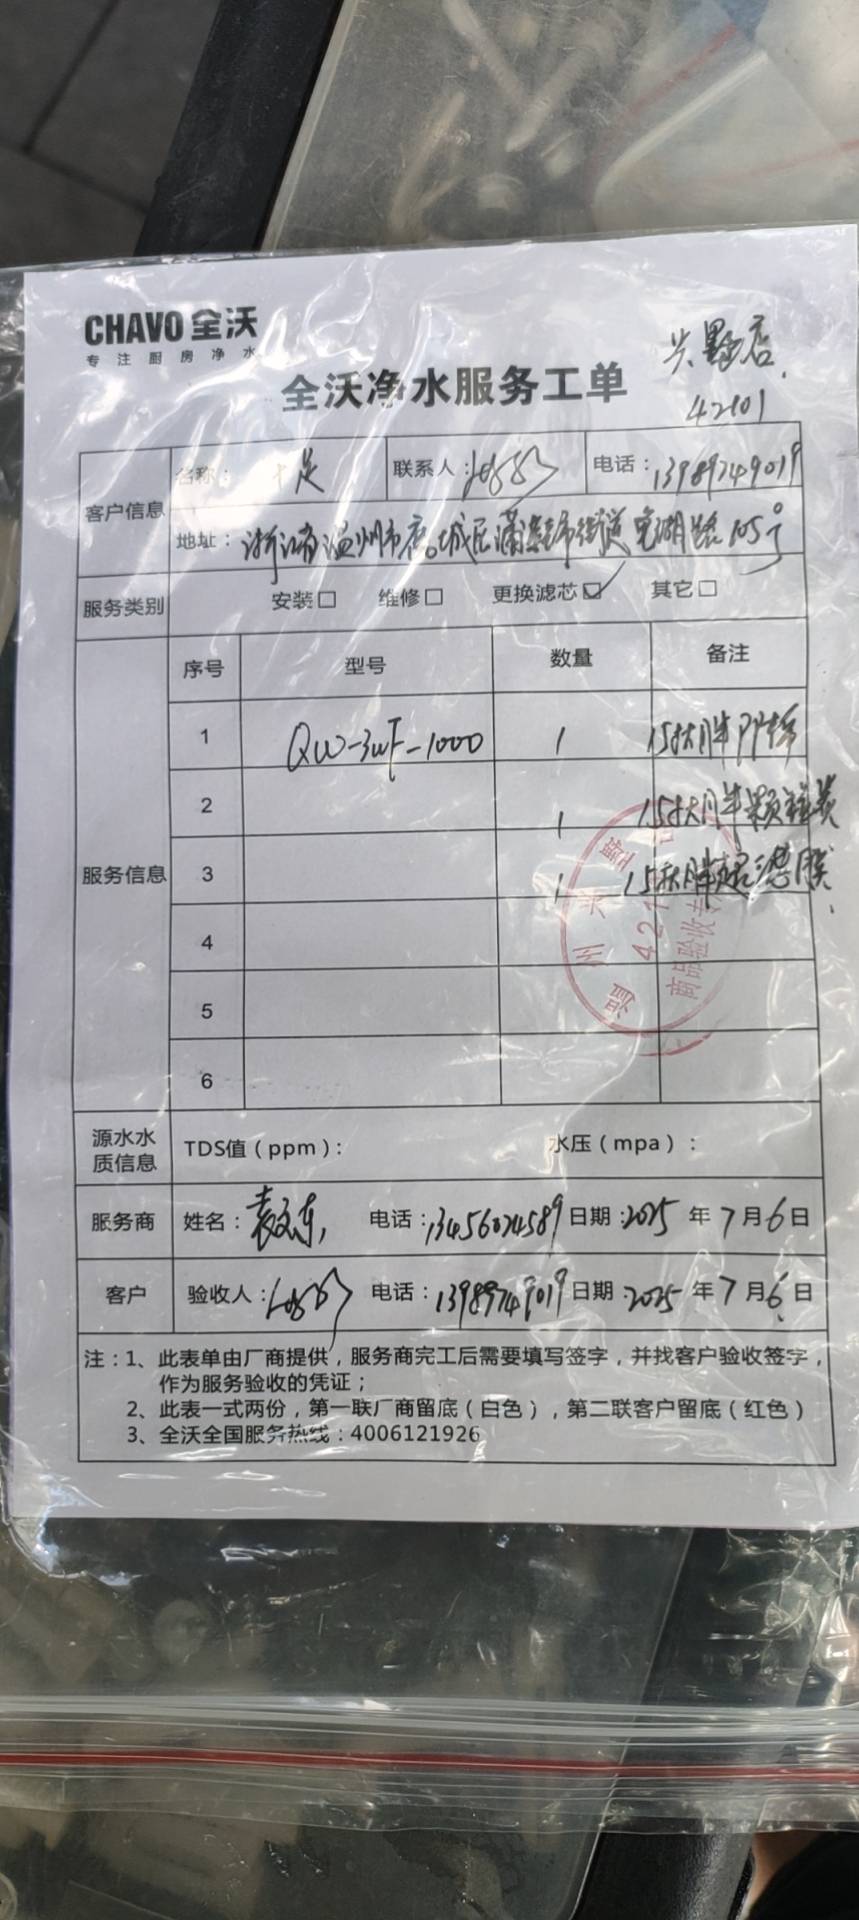 CHAVO 全沃
专注厨房净水
店
42101
全沃净水服务工单
客户信息 名称：十足 联系人： 电话：13989749019
地址：浙江省温州市 城区 街道 路105号
服务类别 安装□ 维修□ 更换滤芯☑ 其它□
服务信息 序号 型号 数量 备注
1 QW-3WF-1000 1 15寸大胖PP棉
2 1 15寸大胖颗粒炭
3 1 15寸大胖超滤膜
4
5
6
温州 421 商品验收专
源水水质信息 TDS值（ppm）： 水压（mpa）：
服务商 姓名：袁文东 电话：13456024589 日期：2025年7月6日
客户 验收人： 电话：13989749019 日期：2025年7月6日
注：1、此表单由厂商提供，服务商完工后需要填写签字，并找客户验收签字，
作为服务验收的凭证；
2、此表一式两份，第一联厂商留底（白色），第二联客户留底（红色）
3、全沃全国服务热线：4006121926